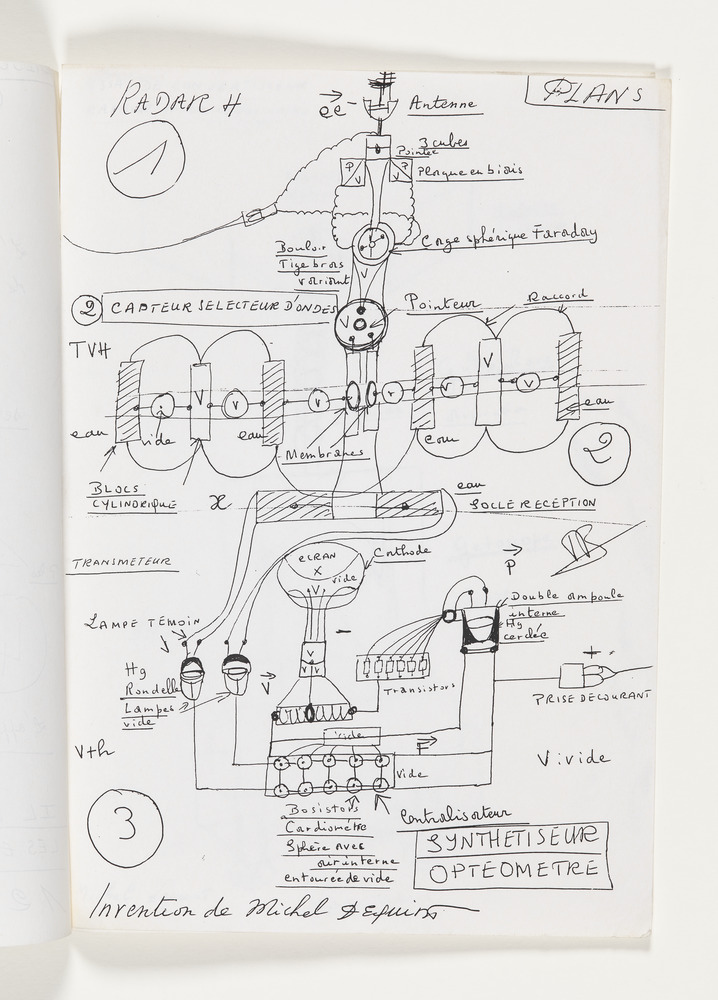 PLANS
RADAR H
ee-
Antenne
1
3 cubes
Pointée
P
V
P
V
Plaque en biais
Cage sphérique Faraday
Bouloir
Tige bras
variant
V
2 CAPTEUR SELECTEUR D'ONDES
V
Pointeur
Raccord
TVH
V
V
V
V
V
V
V
eau
vide
eau
eau
eau
Membranes
2
BLOCS
CYLINDRIQUE
X
eau
SOCLE RECEPTION
TRANSMETEUR
ECRAN
X
vide
V
Cathode
P
LAMPE TÉMOIN
V
Double ampoule
interne
Hg
cerclée
Hg
Rondelle
Lampes
vide
V
V
V V
Transistors
+ -
PRISE DE COURANT
Vth
vide
F
Vide
V: vide
3
Bosistors
Cardiomètre
Sphère avec
air interne
entourée de vide
Centralisateur
SYNTHETISEUR
OPTEOMETRE
Invention de Michel